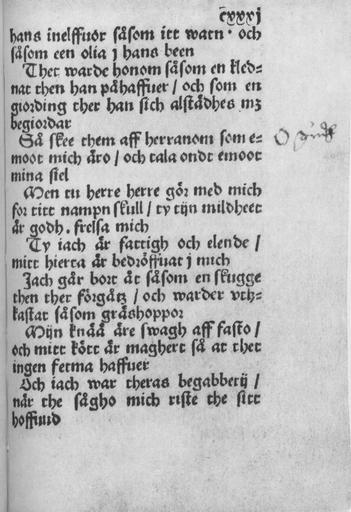 cxxxj
hans inelffuor såsom itt watn · och
såsom een olia j hans been
Thet warde honom såsom en kled=
nat then han påhaffuer / och som en
giording ther han sich alstådhes mz
begiordar
Så skee them aff herranom som e=
moot mich åro / och tala ondt emoot
mina siel
Men tu herre herre gör med mich
for titt nampn skull / ty tijn mildheet
år godh . frelsa mich
Ty iach år fattigh och elende /
mitt hierta år bedröffuat j mich
Jach går bort åt såsom en skugge
then ther förgåtz / och warder vtz=
kastat såsom gråshoppor
Mijn knåå åre swagh aff fasto /
och mitt kött år maghert så at thet
ingen fetma haffuer
Och iach war theras begabberij /
når the sågho mich riste the sitt
hoffuud